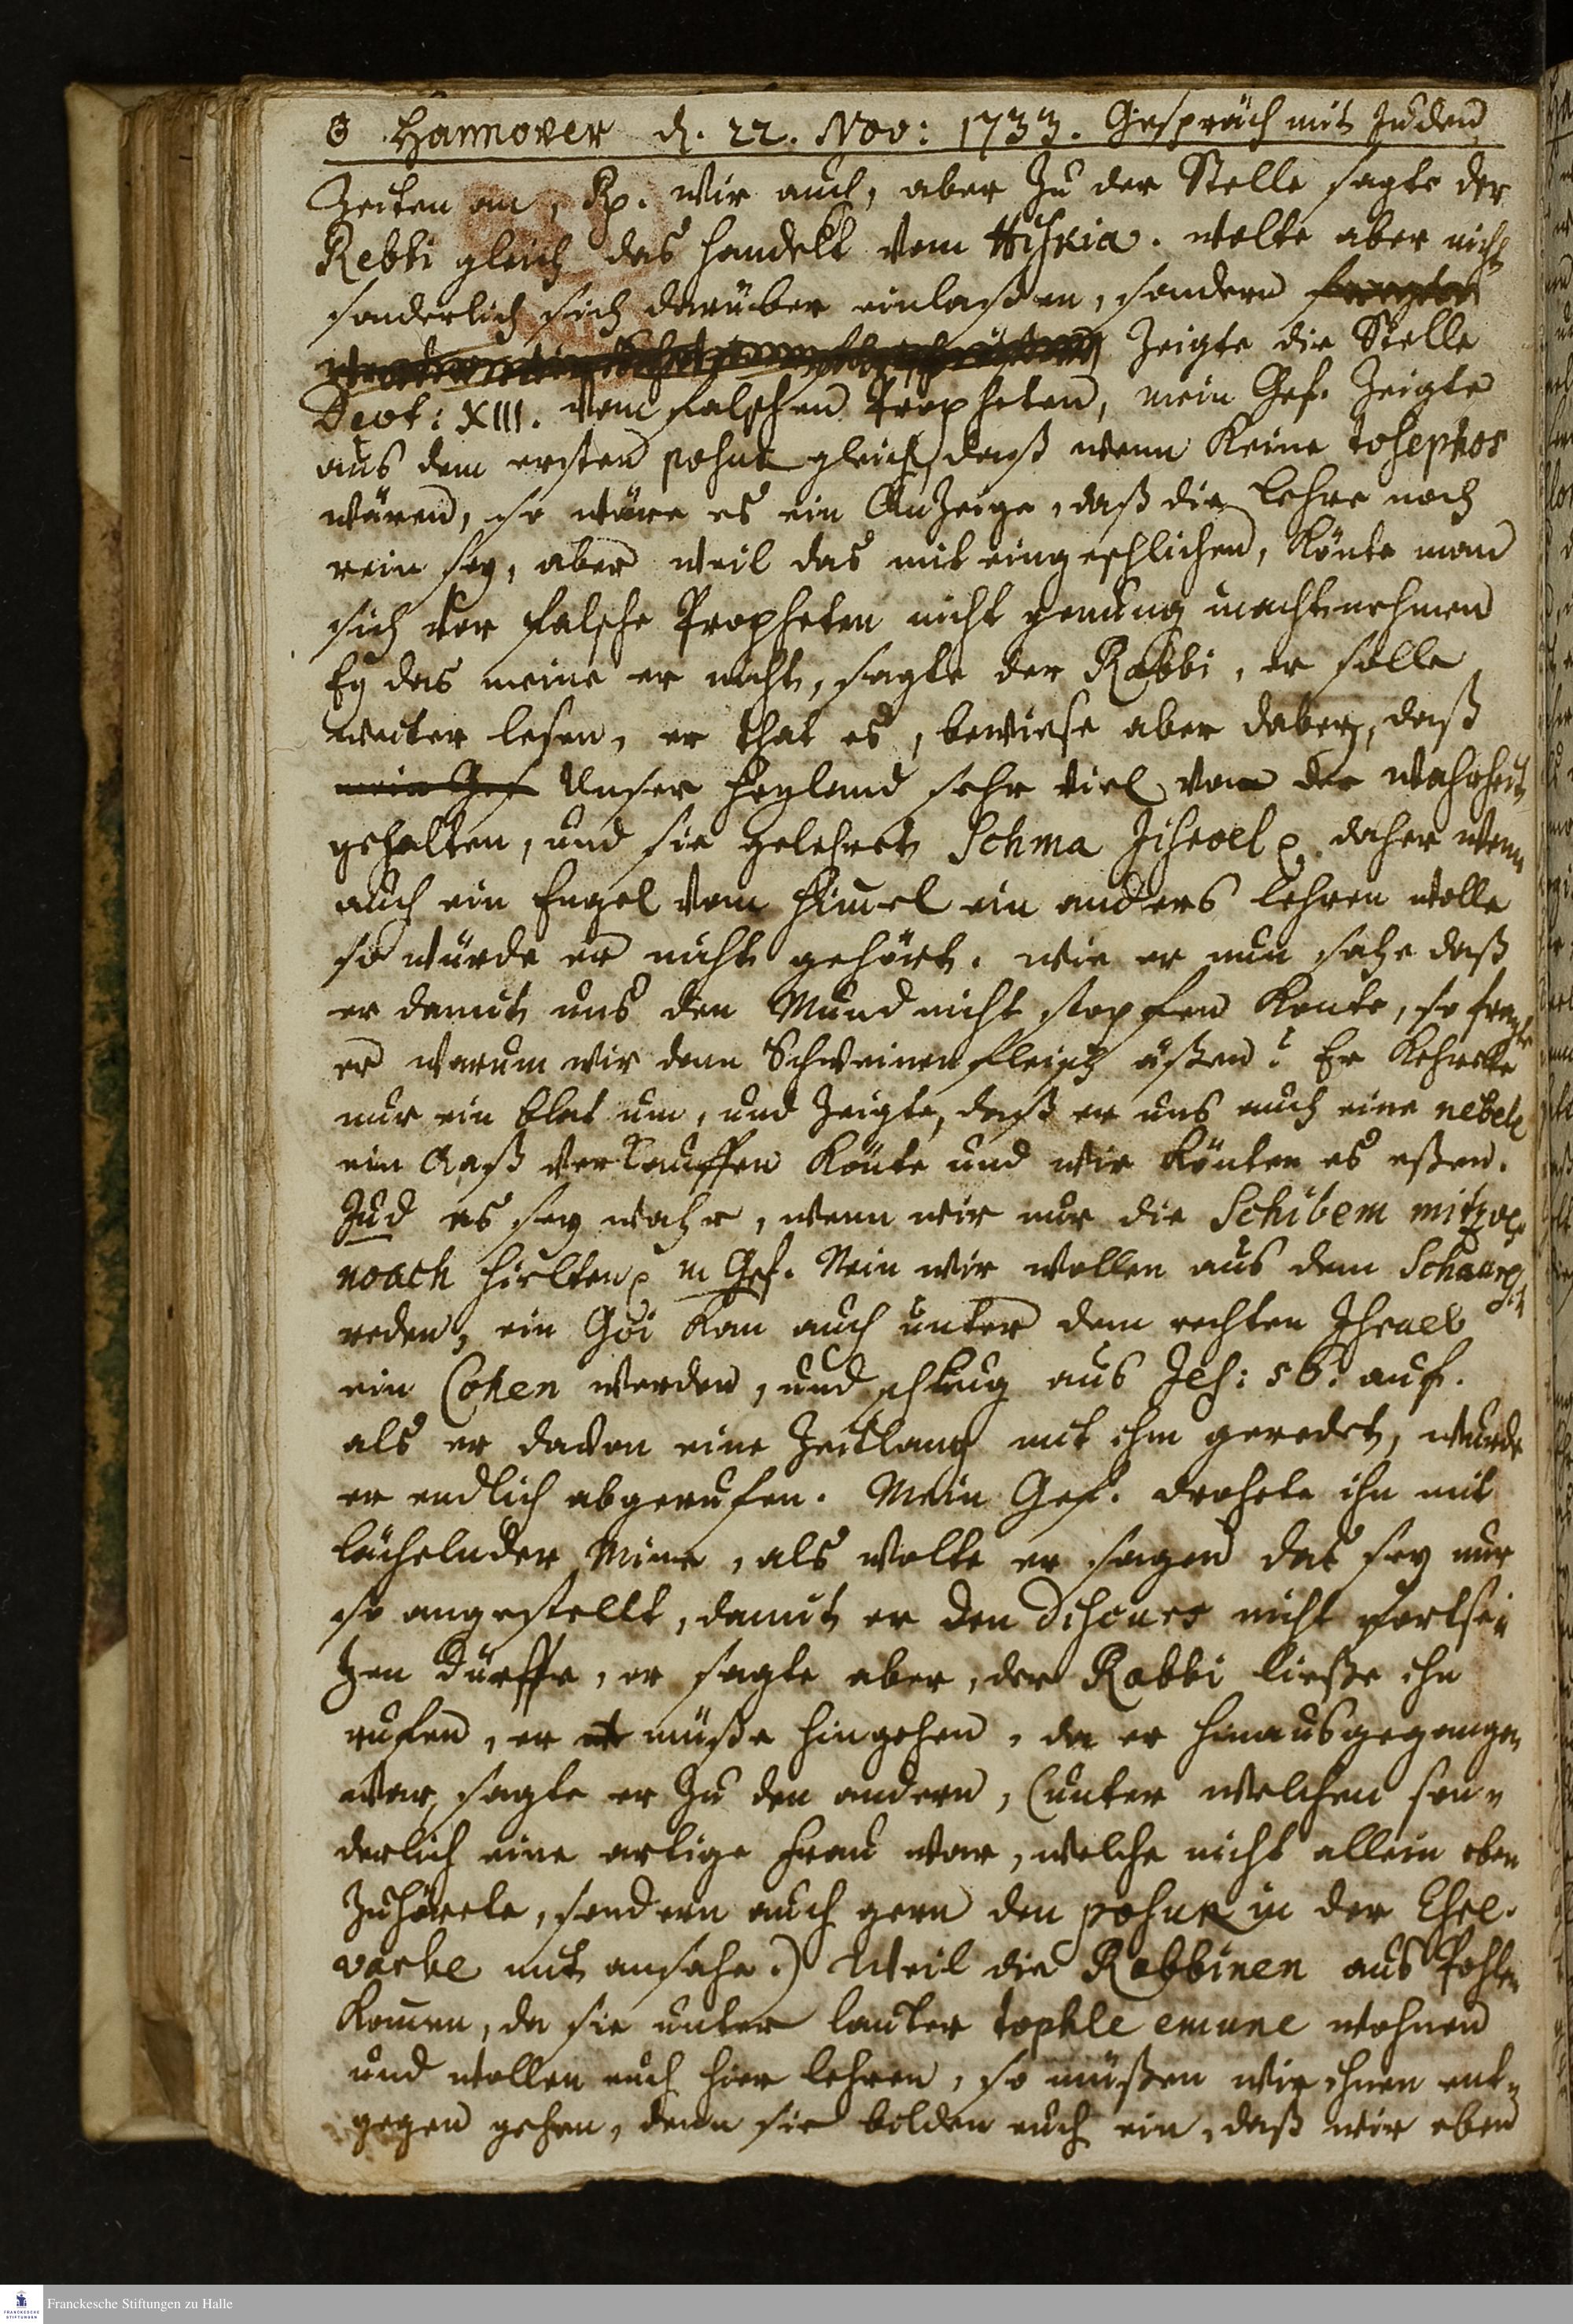 Hannover d. 22. Nov: 1733. Gespräch mit Juden
Zeiten an, Rp. wir auch, aber zu der Stelle sagte der
Rebbi gleich das handelt vom Hiskia. wolte aber nicht
sonderlich sich darüber einlaßen, sondern fragte
zeigte die Stelle
Deot: XIII. vom falschen Propheten, mein Gef. zeigte
aus dem ersten posuk gleich, daß wenn keine tosephos
wären, so wäre es ein Anzeige, daß die Lehre noch
rein sey, aber weil das mit eingeschlichen, könte man
sich vor falsche Propheten nicht genung inacht nehmen
Ey das meine er nicht, sagte der Rabbi, er solle
weiter lesen, er that es, bewiese aber dabey, daß
mein Gef Unser Heyland sehr viel von der Wahrheit
gehalten, und sie gelehret Schma Jisroel p. daher wenn
auch ein Engel vom Himel ein anders lehren wolle
so würde er nicht gehört. wie er nun sahe daß
er damit uns den Mund nicht stopfen konte, so fragte
er warum wir denn Schweinen fleisch äßen? Er kehrete
nur ein blat um, und zeigte, daß er uns auch eine nebele
ein Aaß verkauffen könte und wir könten es eßen.
Jud es sey wahr, wenn wir nur die Schibem mitzos
noach hielten p m Gef. Nein wir wollen aus dem
reden, ein Goi kan auch unter dem rechten Israel
ein Cohen werden, und schlug aus Jes: 56. auf.
als er davon eine Zeitlang mit ihm geredet, wurde
er endlich abgerufen. Mein Gef. drohete ihn mit
lächelnder Mine, als wolte er sagen das sey nur
so angestellt, damit er den Discurs nicht fortse-
tzen dürffe, er sagte aber, der Rabbi ließe ihn
rufen, er müße hingehen, da er hinausgegangen
war, sagte er zu den andern, (unter welchen son-
derlich eine artige Frau war, welche nicht allein eben
zuhörete, sondern auch gern den posuk in der
mit ansahe.) Weil die Rabbinen aus Pohlen
komen, da sie unter lauter tophle emune wohnen
und wollen euch hier lehren, so müßen wir ihnen ent-
gegen gehen, denn sie bilden euch ein, daß wir eben
Franckesche Stiftungen zu Halle
FRANCKESCHE
STIFTUNGEN